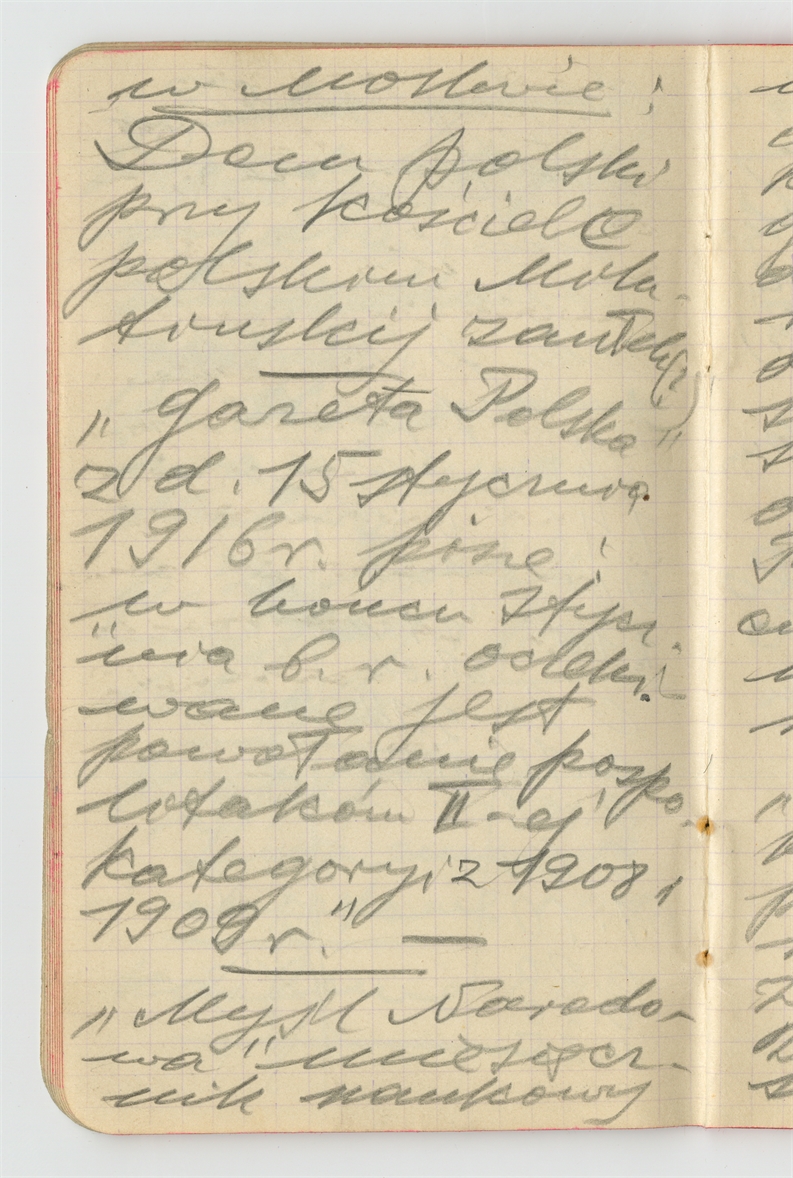 w Moskwie:
Dom polski
przy kościele
polskim Milu-
tinskij zaułek (?)
„Gazeta Polska"
z d. 15 stycznia
1916 r. pisze:
w końcu stycz-
„nia b. r. oczeki-
wane jest
powołanie pospo-
litaków II-ej
kategoryi z 1908 i
1909 r." —
„Myśl Narodo-
wa" miesięcz-
nik naukowy